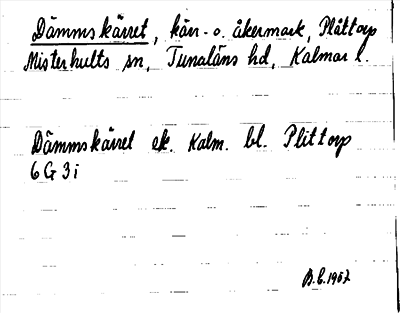 Dämmskärret, kärr- o. åkermark, Plåttorp
Misterhults sn, Tunaläns hd, Kalmar l.
Dämmskärret ek. Kalm. bl. Plittorp
6 G 3 i
B.E. 1967